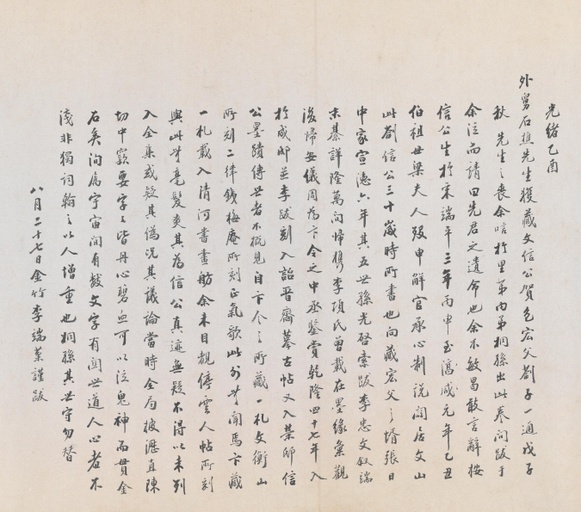 光緒乙酉
外舅石樵先生獲藏文信公賀包宏父劄子一通戊子
秋先生之喪余唁於里第內弟桐孫出此卷問跋于
余泣而請曰先君之遺命也余不敏曷敢言辭按
信公生於宋端平三年丙申至咸淳元年乙丑
伯祖母梁夫人歿申解官承心制說閒居文山
此劄信公三十歲時所書也向藏宏父之壻張日
中家宣德六年其五世孫光啓索跋李忠文叙端
末綦詳隆萬間歸檇李項氏曾載在墨緣彙觀
後歸安儀周為卞令之中丞鑒賞乾隆四十七年入
於成邸並李跋刻入詒晉齋摹古帖又入榮邸信
公墨蹟傳世者不概見自卞令之所藏一札文衡山
所刻二律錢梅庵所刻正氣歌此外僅聞馬卞藏
一札載入清河書畫舫余未目覩停雲人帖所刻
與此毫髮爽其為信公真蹟無疑不得以未列
入全集或疑其偽況其議論當時全局披瀝直陳
切中窾要字字皆丹心碧血可以泣鬼神而貫金
石矣洵為宇宙間有數文字有關世道人心者不
淺非獨詞翰之以人增重也桐孫其世守勿替
八月二十七日金竹李端棻謹跋